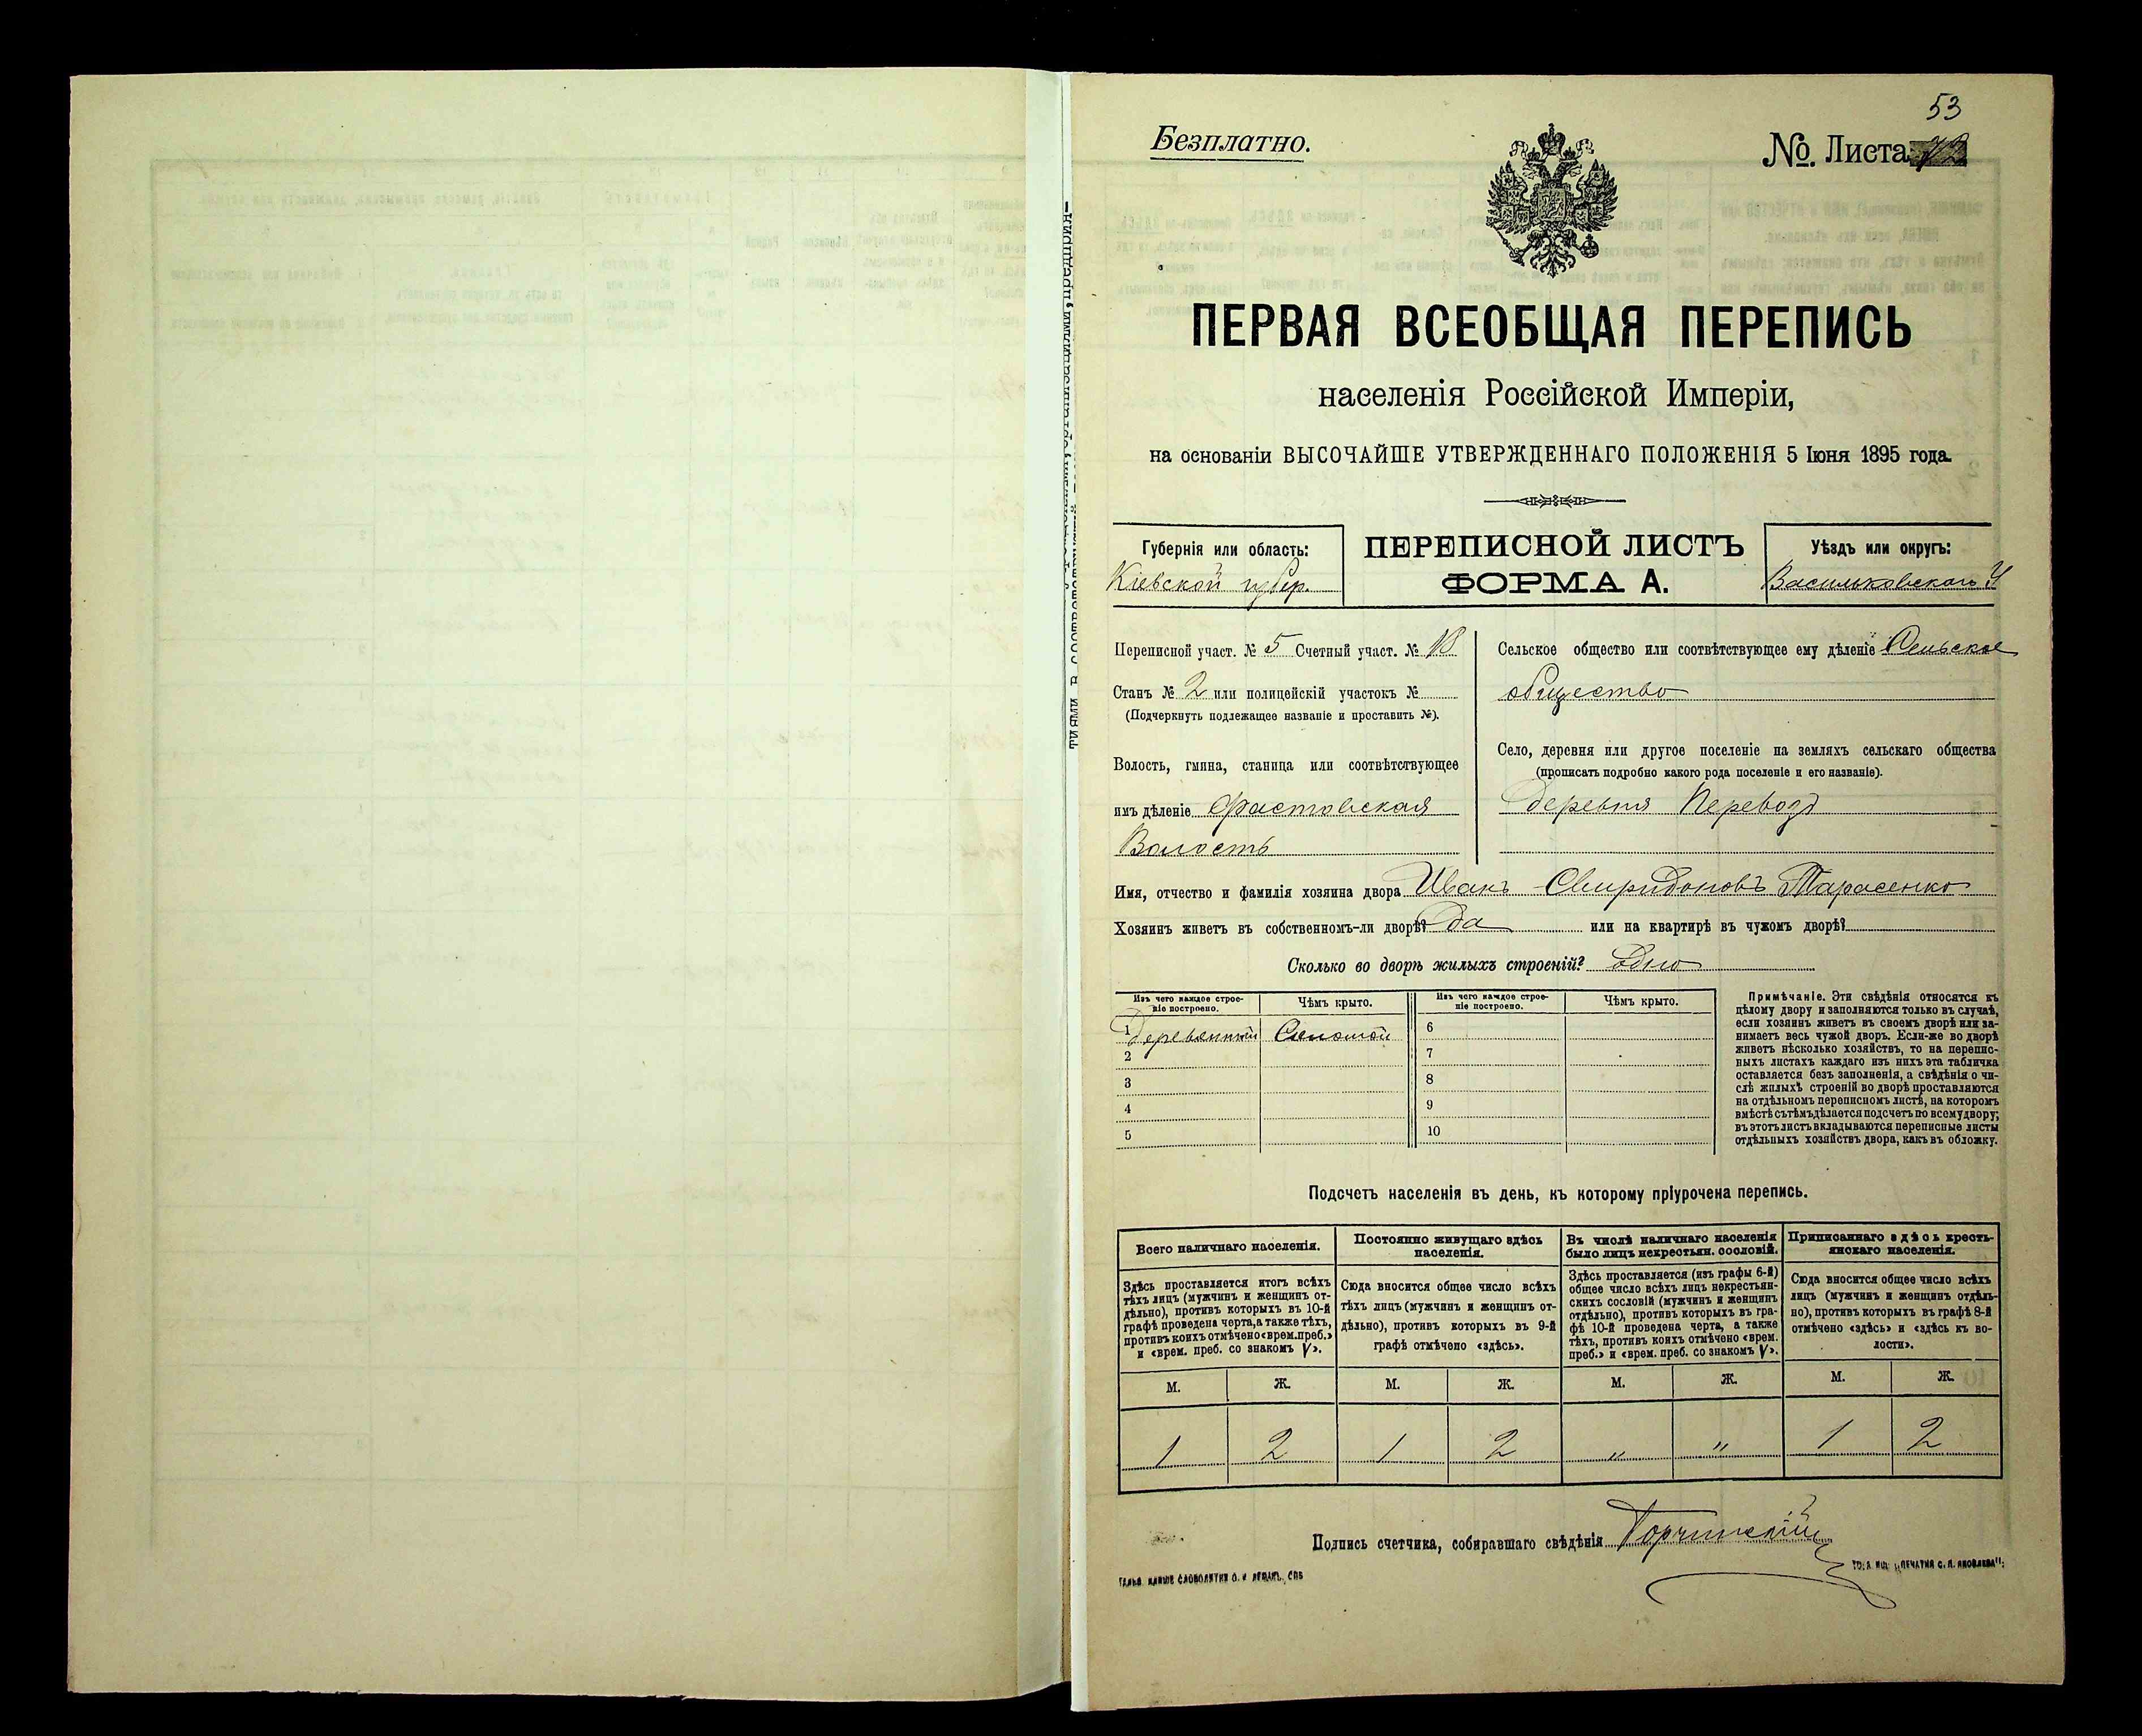 53
Безплатно.
№. Листа 72
ПЕРВАЯ ВСЕОБЩАЯ ПЕРЕПИСЬ
населенія Россійской Имперіи,
на основаніи ВЫСОЧАЙШЕ УТВЕРЖДЕННАГО ПОЛОЖЕНІЯ 5 Іюня 1895 года.
Губернія или область:
Кіевской губер.
ПЕРЕПИСНОЙ ЛИСТЪ
ФОРМА А.
Уѣздъ или округъ:
Васильковскаго У
Переписной участ. № 5 Счетный участ. №
Станъ № 2 или полицейскій участокъ №
(Подчеркнуть подлежащее названіе и проставить №).
Волость, гмина, станица или соотвѣтствующее
имъ дѣленіе Фастовская
Волость
Сельское общество или соотвѣтствующее ему дѣленіе Сельское
общество
Село, деревня или другое поселеніе на земляхъ сельскаго общества
(прописать подробно какого рода поселеніе и его названіе).
Деревня Перевозъ
Имя, отчество и фамилія хозяина двора Иванъ Свиридоновъ Тарасенко
Хозяинъ живетъ въ собственномъ-ли дворѣ? Да или на квартирѣ въ чужомъ дворѣ?
Сколько во дворѣ жилыхъ строеній? Одно
Изъ чего каждое строе-
ніе построено.
Чѣмъ крыто.
Изъ чего каждое строе-
ніе построено.
Чѣмъ крыто.
1 Деревянный Соломой
2
3
4
5
6
7
8
9
10
Примѣчаніе. Эти свѣдѣнія относятся къ
цѣлому двору и заполняются только въ случаѣ,
если хозяинъ живетъ въ своемъ дворѣ или за-
нимаетъ весь чужой дворъ. Если-же во дворѣ
живетъ нѣсколько хозяйствъ, то на перепис-
ныхъ листахъ каждаго изъ нихъ эта табличка
оставляется безъ заполненія, а свѣдѣнія о чи-
слѣ жилыхъ строеній во дворѣ проставляются
на отдѣльномъ переписномъ листѣ, на которомъ
вмѣстѣ съ тѣмъ дѣлается подсчетъ по всему двору;
въ этотъ листъ вкладываются переписные листы
отдѣльныхъ хозяйствъ двора, какъ въ обложку.
Подсчетъ населенія въ день, къ которому пріурочена перепись.
Всего наличнаго населенія.
Здѣсь проставляется итогъ всѣхъ
тѣхъ лицъ (мужчинъ и женщинъ от-
дѣльно), противъ которыхъ въ 10-й
графѣ проведена черта, а также тѣхъ,
противъ коихъ отмѣчено «врем. преб.»
и «врем. преб. со знакомъ V».
Постоянно живущаго здѣсь
населенія.
Сюда вносится общее число всѣхъ
тѣхъ лицъ (мужчинъ и женщинъ от-
дѣльно), противъ которыхъ въ 9-й
графѣ отмѣчено «здѣсь».
Въ числѣ наличнаго населенія
было лицъ некрестьян. сословій.
Здѣсь проставляется (изъ графы 6-й)
общее число всѣхъ лицъ некрестьян-
скихъ сословій (мужчинъ и женщинъ
отдѣльно), противъ которыхъ въ гра-
фѣ 10-й проведена черта, а также
тѣхъ, противъ коихъ отмѣчено «врем.
преб.» и «врем. преб. со знакомъ V».
Приписаннаго здѣсь кресть-
янскаго населенія.
Сюда вносится общее число всѣхъ
лицъ (мужчинъ и женщинъ отдѣль-
но), противъ которыхъ въ графѣ 8-й
отмѣчено «здѣсь» и «здѣсь къ во-
лости».
М. Ж. М. Ж. М. Ж. М. Ж.
1 2 1 2 " " 1 2
Подпись счетчика, собиравшаго свѣдѣнія